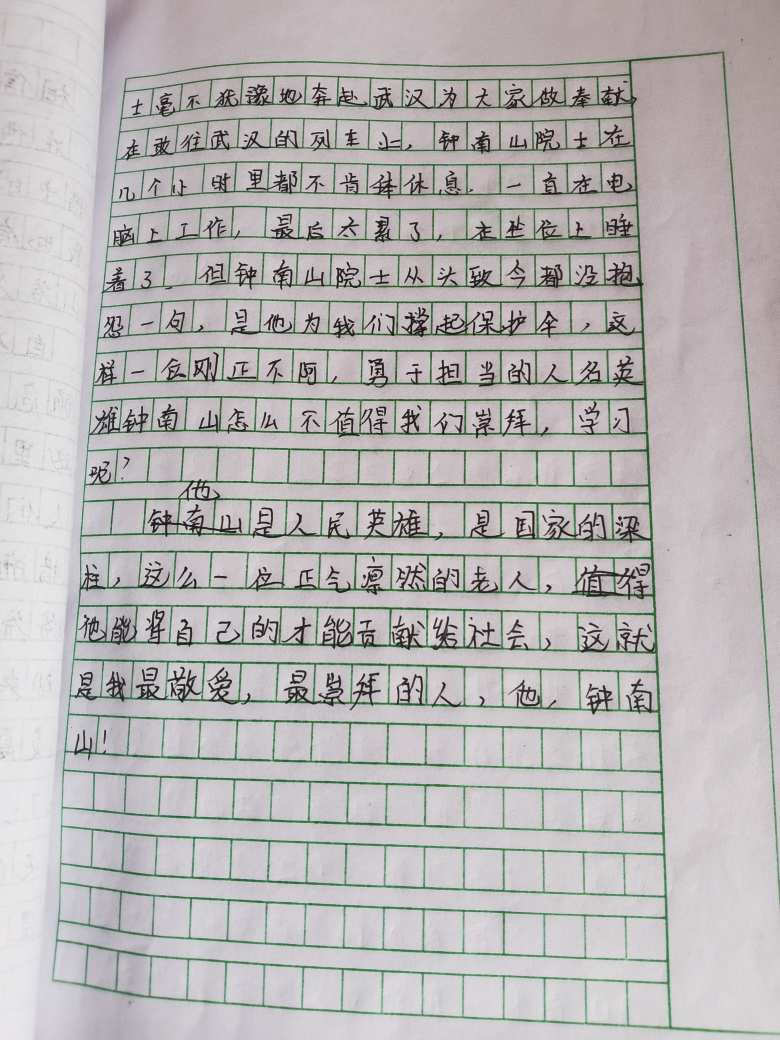 士毫不犹豫地奔赴武汉为大家做奉献,
在敢往武汉的列车上,钟南山院士在
几个小时里都不肯休息.一直在电
脑上工作,最后太累了,在坐位上睡
着了.但钟南山院士从头致今都没抱
怨一句,是他为我们撑起保护伞,这
样一位刚正不阿,勇于担当的人名英
雄钟南山怎么不值得我们崇拜,学习
呢?
他
钟南山是人民英雄,是国家的梁
柱,这么一位正气凛然的老人,值得
他能将自己的才能贡献给社会,这就
是我最敬爱,最崇拜的人,他,钟南
山!